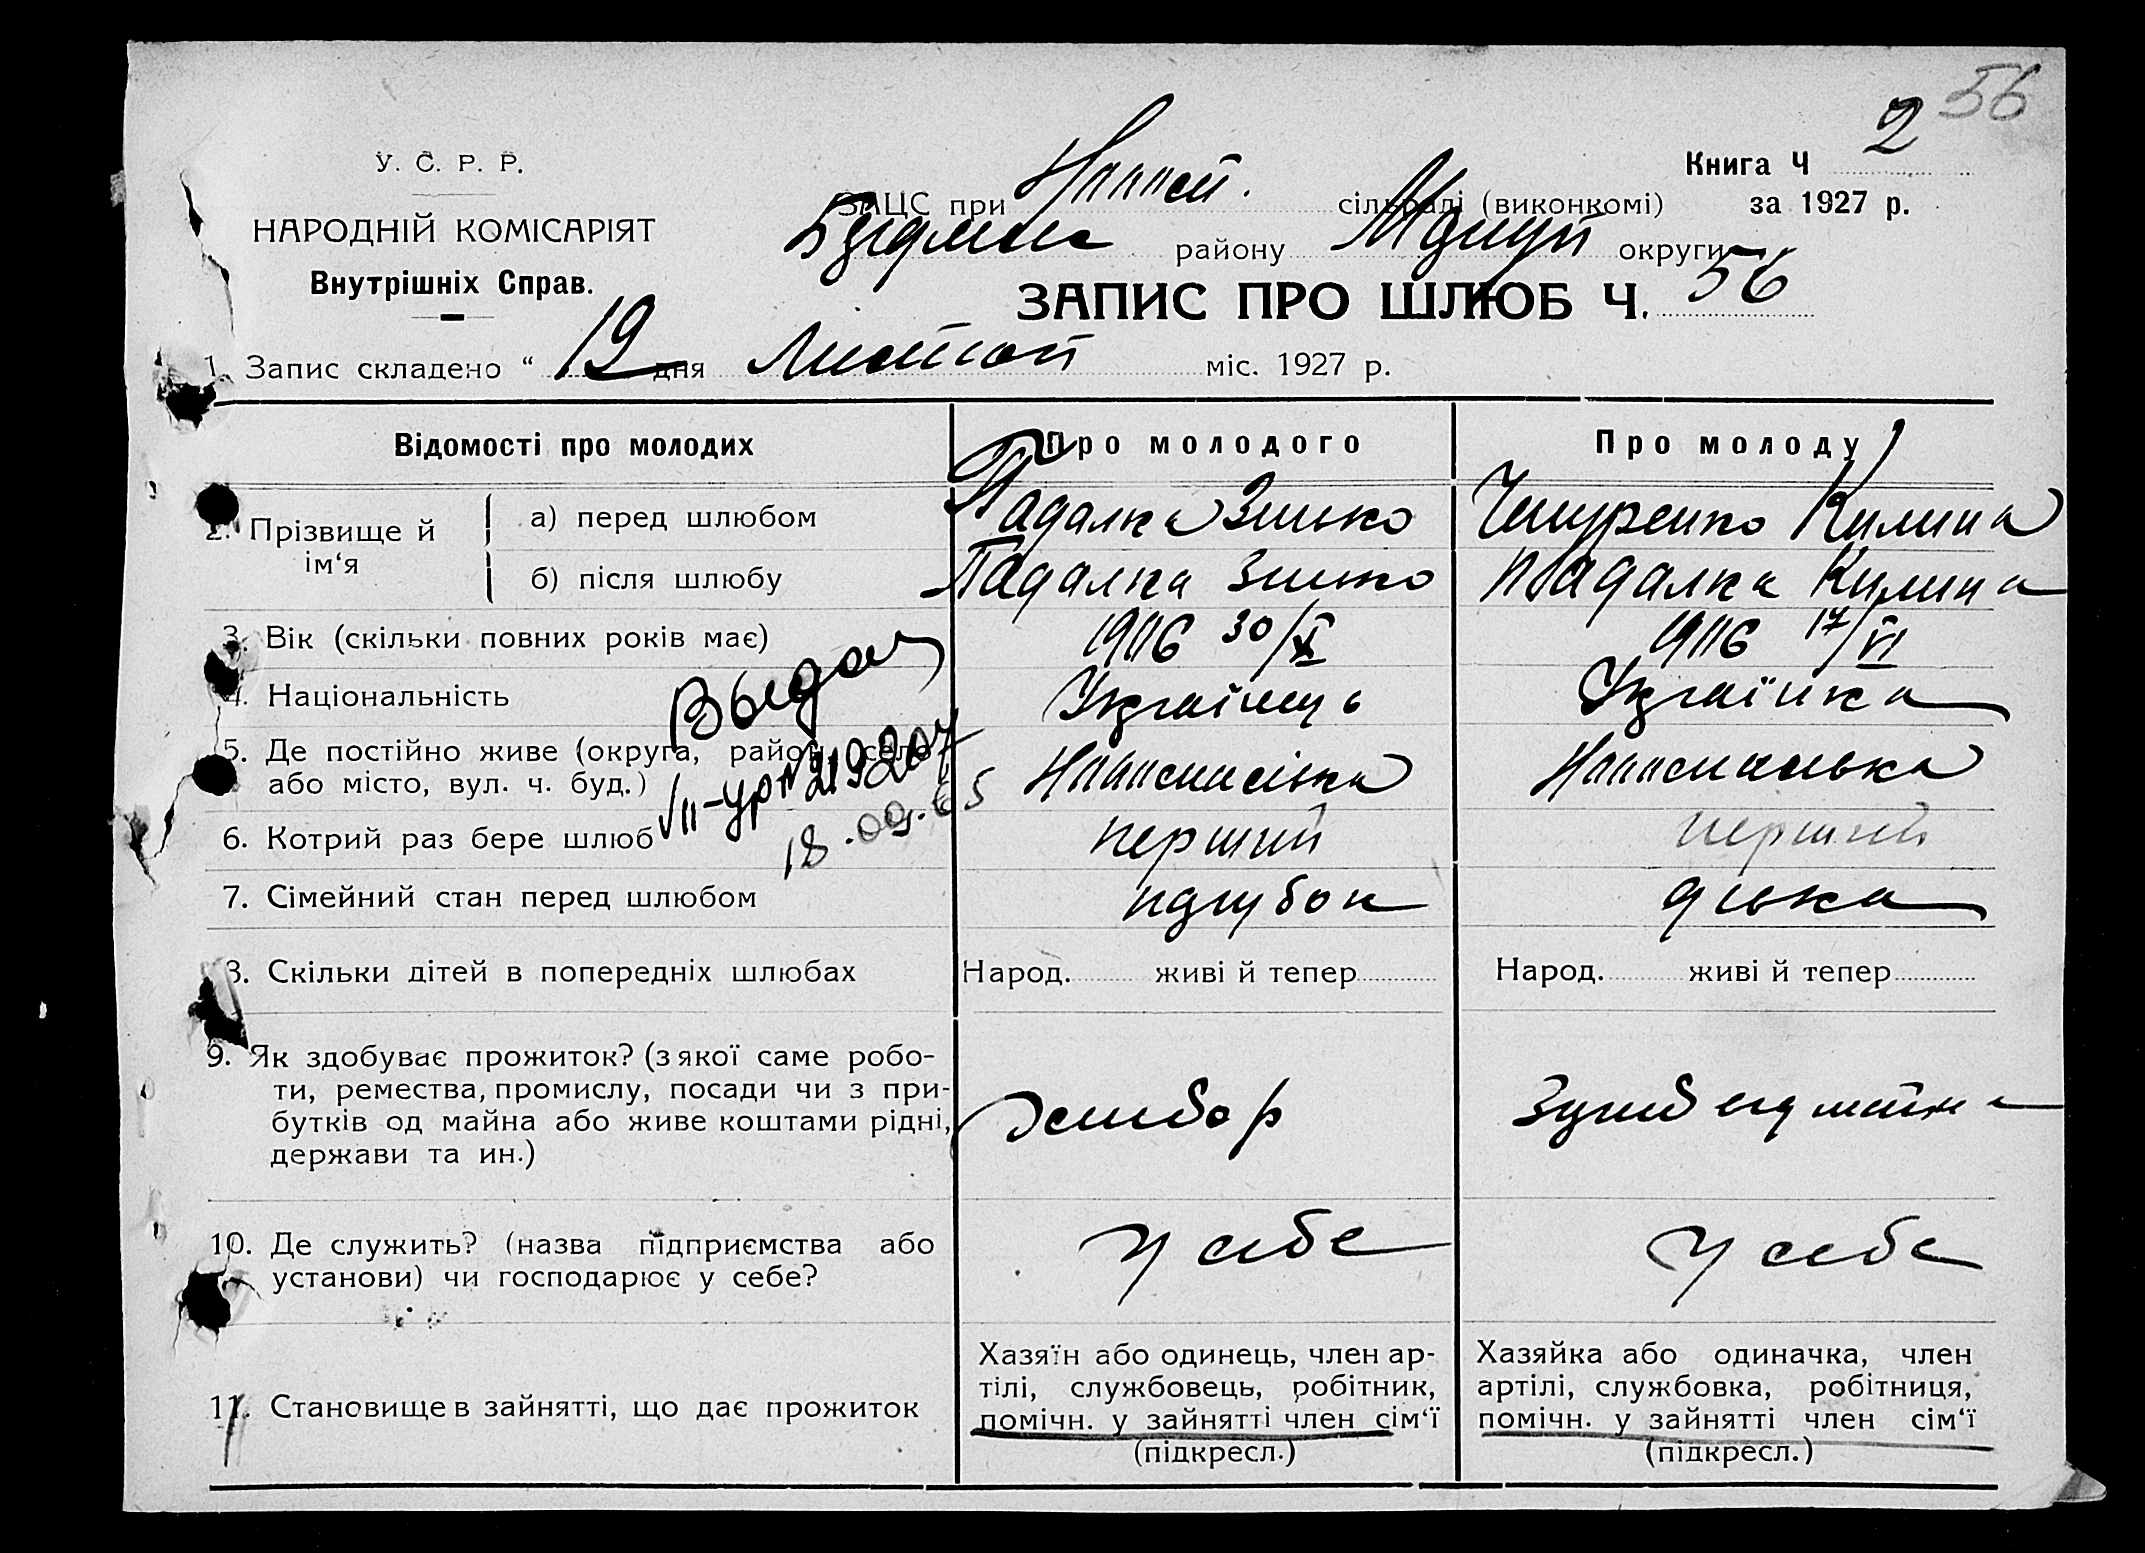 56
У. С. Р. Р.
НАРОДНІЙ КОМІСАРІЯТ
Внутрішніх Справ.
Книга Ч 2
за 1927 р.
ЗАЦС при сільраді (виконкомі)
району округи
ЗАПИС ПРО ШЛЮБ Ч. 56
1. Запис складено “ 12 дня Листоп міс. 1927 р.
Відомості про молодих
Про молодого
Про молоду
2. Прізвище й ім‘я
а) перед шлюбом
Падалка Зінько
Килина
б) після шлюбу
Падалка Зінько
Падалка Килина
3. Вік (скільки повних років має)
1906 30/X
1906 17/VI
4. Національність
Українець
Українка
5. Де постійно живе (округа, район, село
або місто, вул. ч. буд.)
6. Котрий раз бере шлюб
перший
перший
7. Сімейний стан перед шлюбом
парубок
дівка
Выдан
18.09.65
8. Скільки дітей в попередніх шлюбах
Народ. живі й тепер
Народ. живі й тепер
9. Як здобуває прожиток? (з якої саме робо-
ти, ремества, промислу, посади чи з при-
бутків од майна або живе коштами рідні,
держави та ин.)
хлібор
10. Де служить? (назва підприємства або
установи) чи господарює у себе?
у себе
у себе
11. Становище в зайнятті, що дає прожиток
Хазяїн або одинець, член ар-
тілі, службовець, робітник,
помічн. у зайнятті член сім‘ї
(підкресл.)
Хазяйка або одиначка, член
артілі, службовка, робітниця,
помічн. у зайнятті член сім‘ї
(підкресл.)